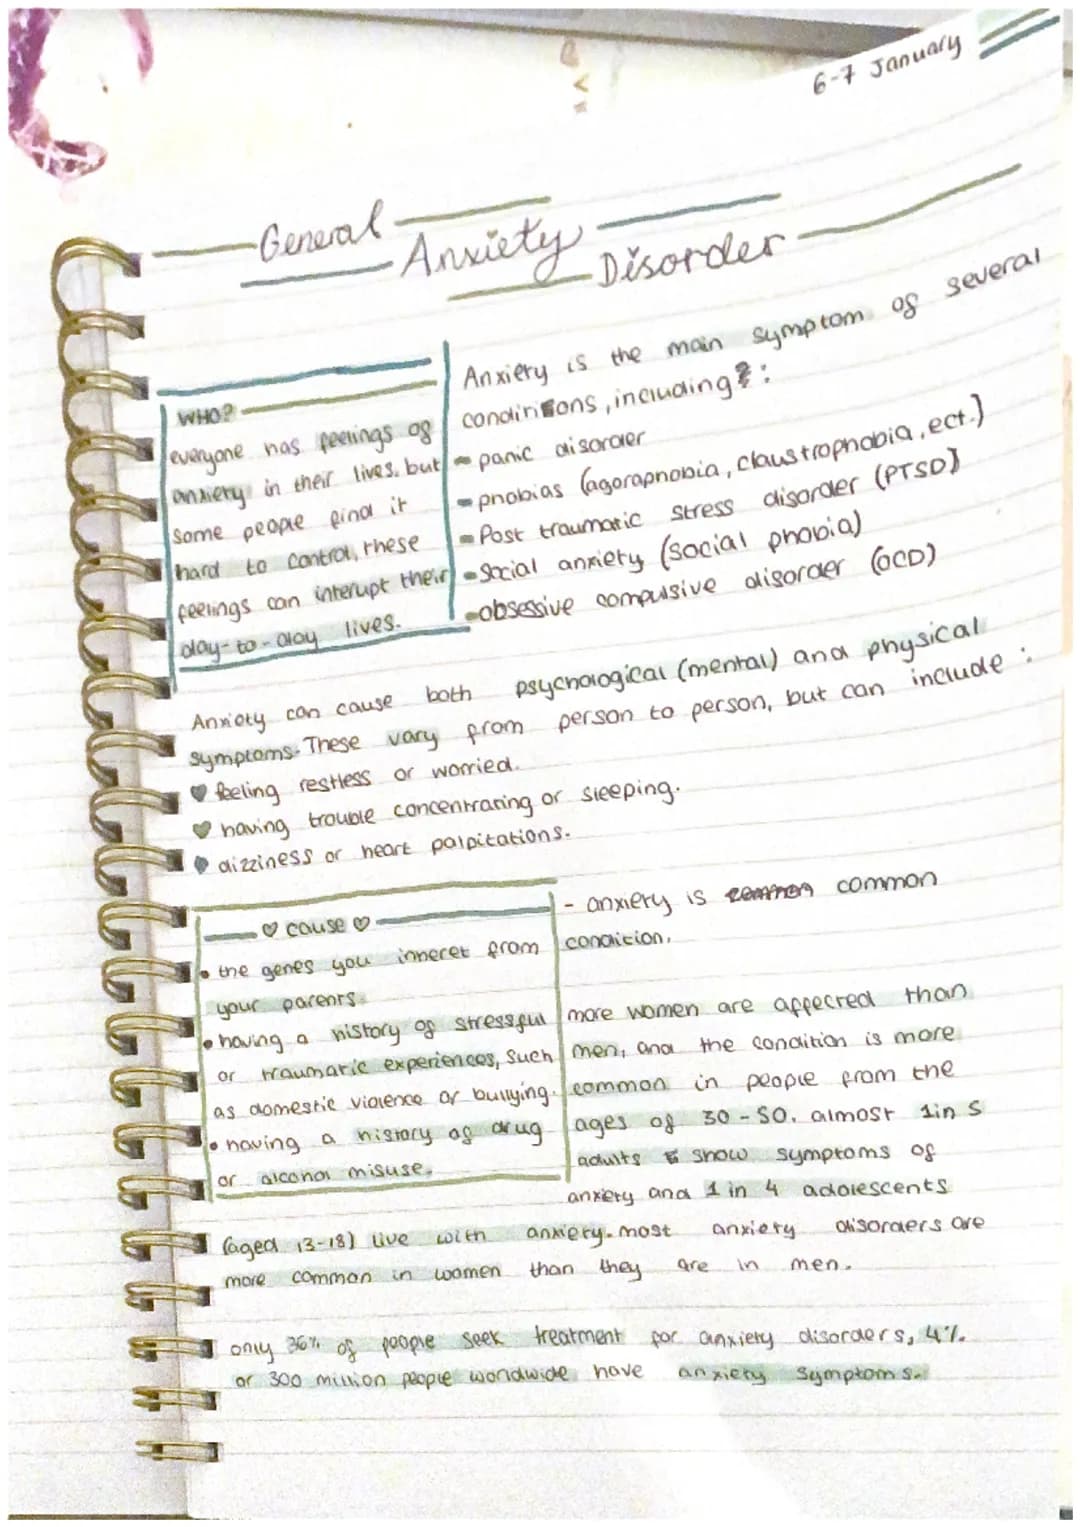 6-7 January
General
Anxiety
Disorder
WHO?
everyone has feelings of
anxiety in their lives. but
some people find it
hard to control, these
feelings can interupt their
day-to-day lives.
Anxiety is the main symptom of several
conditions, including:
- panic disorder
- phobias (agoraphobia, claustrophobia, ect.)
- Post traumatic stress disorder (PTSD)
- Social anxiety (social phobia)
- obsessive compulsive disorder (OCD)
Anxiety can cause both psychological (mental) and physical
symptoms. These vary from person to person, but can include:
♥ feeling restless or worried.
♥ having trouble concentrating or sleeping.
♥ dizziness or heart palpitations.
♡ cause ♡
• the genes you inheret from
your parents.
• having a history of stressful
or traumatic experiences, such
as domestic violence or bullying.
• having a history of drug
or alcohol misuse.
- anxiety is common common
condition.
more women are affected than
men, and the condition is more
common in people from the
ages of 30-50. almost 1 in 5
adults show symptoms of
anxiety and 1 in 4 adolescents
(aged 13-18) live with anxiety. most anxiety disorders are
more common in women than they are in men.
only 36% of people seek treatment for anxiety disorders, 4%
or 300 million people worldwide have anxiety symptoms.